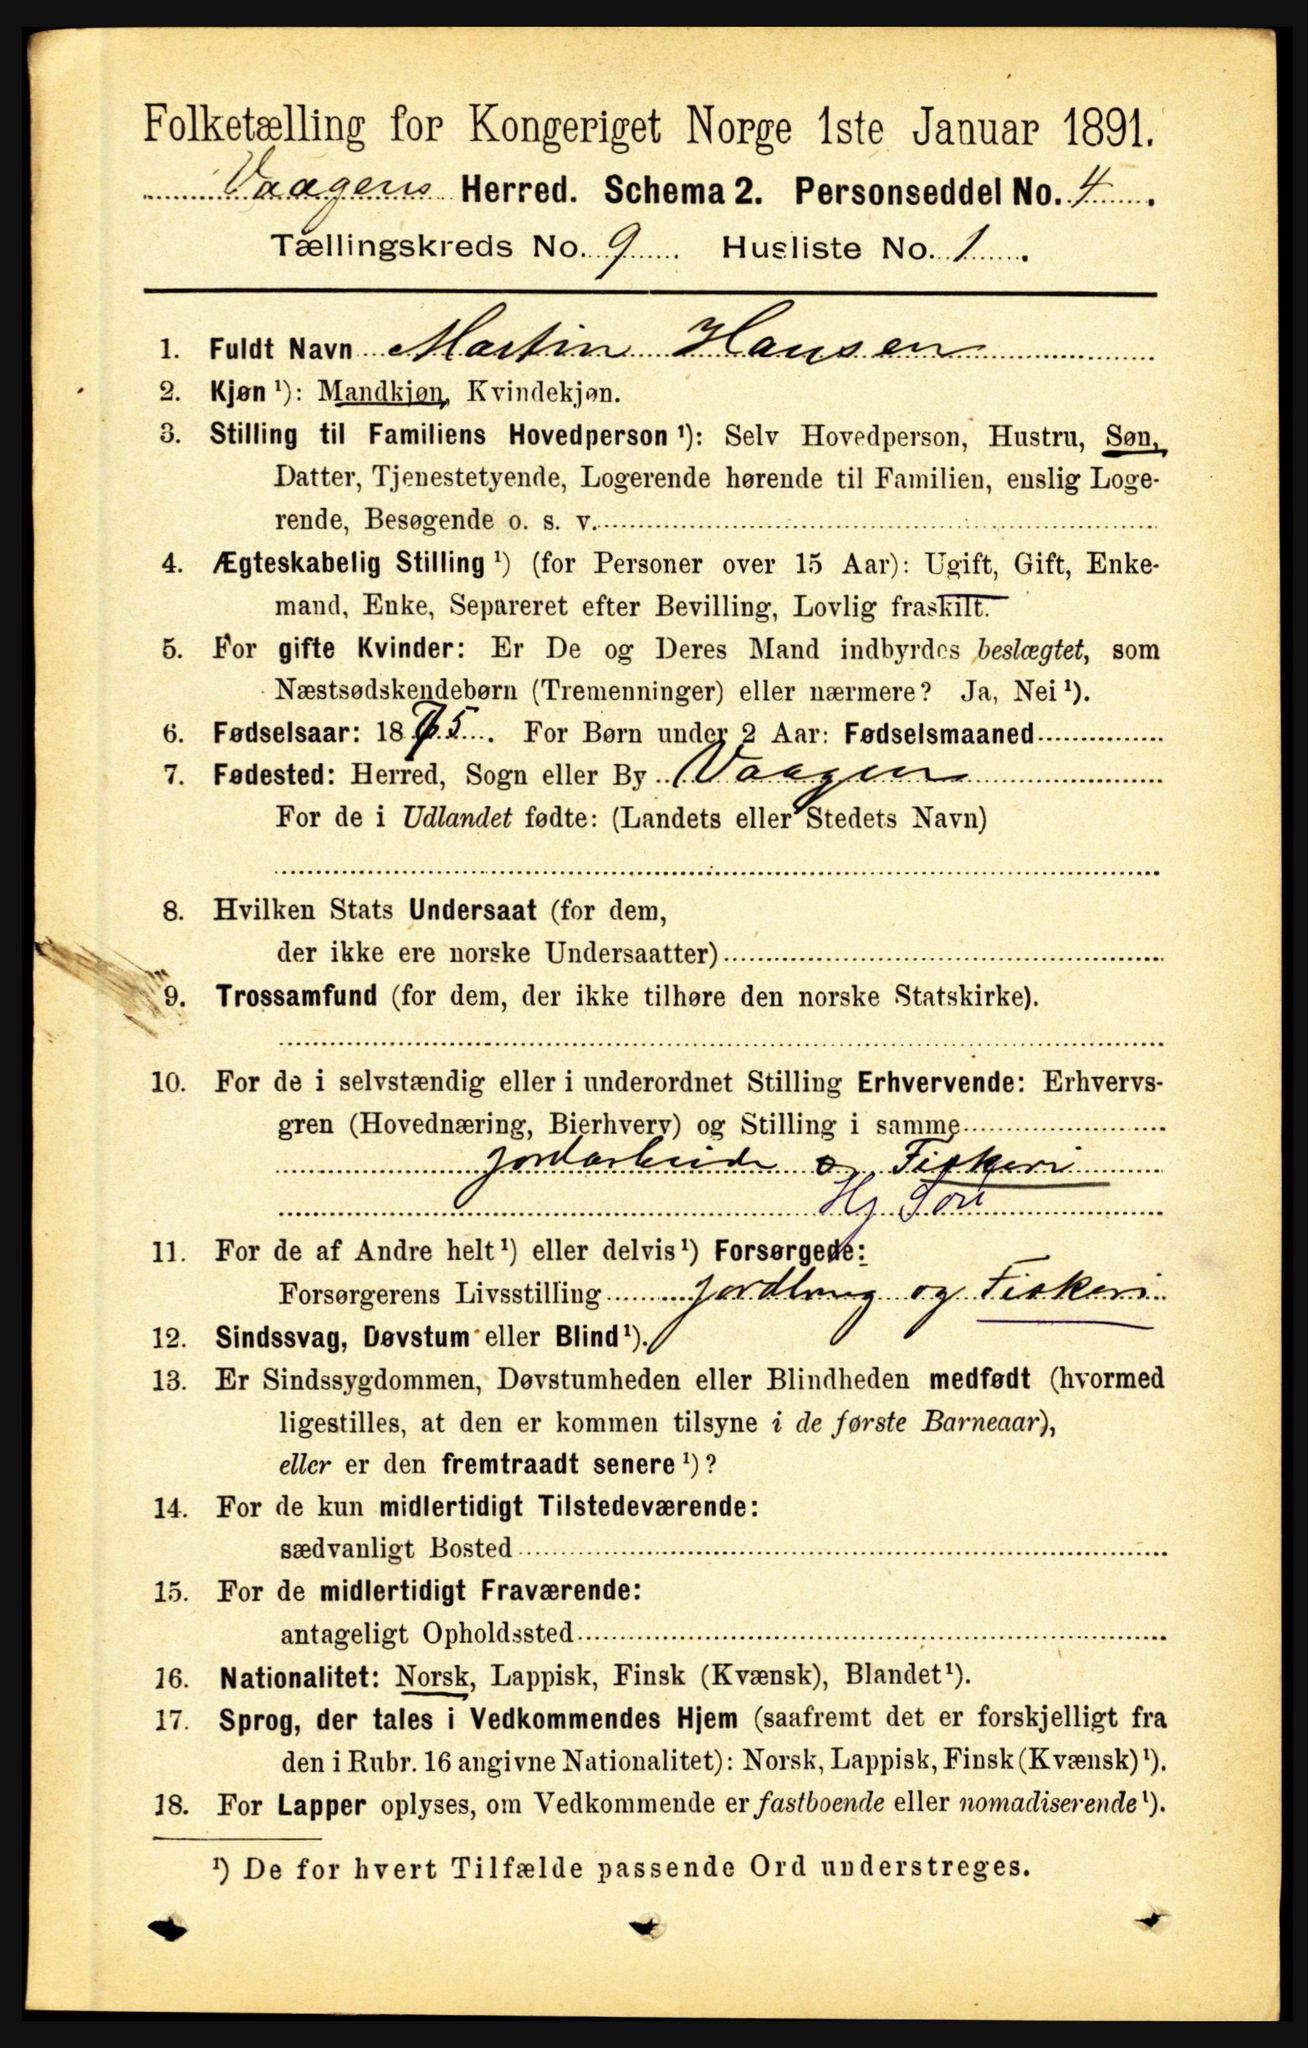 Folketælling for Kongeriget Norge 1ste Januar 1891.
Vaagens Herred. Schema 2. Personseddel No. 4.
Tællingskreds No. 9. Husliste No. 1.
1. Fuldt Navn Martin Hansen
2. Kjøn ¹): Mandkjøn, Kvindekjøn.
3. Stilling til Familiens Hovedperson ¹): Selv Hovedperson, Hustru, Søn,
Datter, Tjenestetyende, Logerende hørende til Familien, enslig Loge-
rende, Besøgende o. s. v.
4. Ægteskabelig Stilling ¹) (for Personer over 15 Aar): Ugift, Gift, Enke-
mand, Enke, Separeret efter Bevilling, Lovlig fraskilt.
5. For gifte Kvinder: Er De og Deres Mand indbyrdes beslægtet, som
Næstsødskendebørn (Tremenninger) eller nærmere? Ja, Nei ¹).
6. Fødselsaar: 1875. For Børn under 2 Aar: Fødselsmaaned
7. Fødested: Herred, Sogn eller By Vaagen
For de i Udlandet fødte: (Landets eller Stedets Navn)
8. Hvilken Stats Undersaat (for dem,
der ikke ere norske Undersaatter)
9. Trossamfund (for dem, der ikke tilhøre den norske Statskirke).
10. For de i selvstændig eller i underordnet Stilling Erhvervende: Erhvervs-
gren (Hovednæring, Bierhverv) og Stilling i samme
jordarbeide og Fiskeri
Hj Søn
11. For de af Andre helt ¹) eller delvis ¹) Forsørgede:
Forsørgerens Livsstilling jordbrug og Fiskeri
12. Sindssvag, Døvstum eller Blind ¹).
13. Er Sindssygdommen, Døvstumheden eller Blindheden medfødt (hvormed
ligestilles, at den er kommen tilsyne i de første Barneaar),
eller er den fremtraadt senere ¹)?
14. For de kun midlertidigt Tilstedeværende:
sædvanligt Bosted
15. For de midlertidigt Fraværende:
antageligt Opholdssted
16. Nationalitet: Norsk, Lappisk, Finsk (Kvænsk), Blandet ¹).
17. Sprog, der tales i Vedkommendes Hjem (saafremt det er forskjelligt fra
den i Rubr. 16 angivne Nationalitet): Norsk, Lappisk, Finsk (Kvænsk) ¹).
18. For Lapper oplyses, om Vedkommende er fastboende eller nomadiserende ¹).
¹) De for hvert Tilfælde passende Ord understreges.